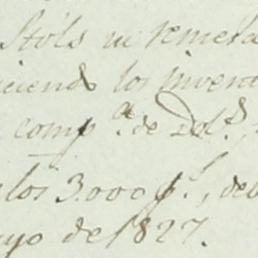 Stóls ni remeta
ciendo los invent
comp.ª de Dds.,
los 3.000 p.s, deb
ayo de 1827.